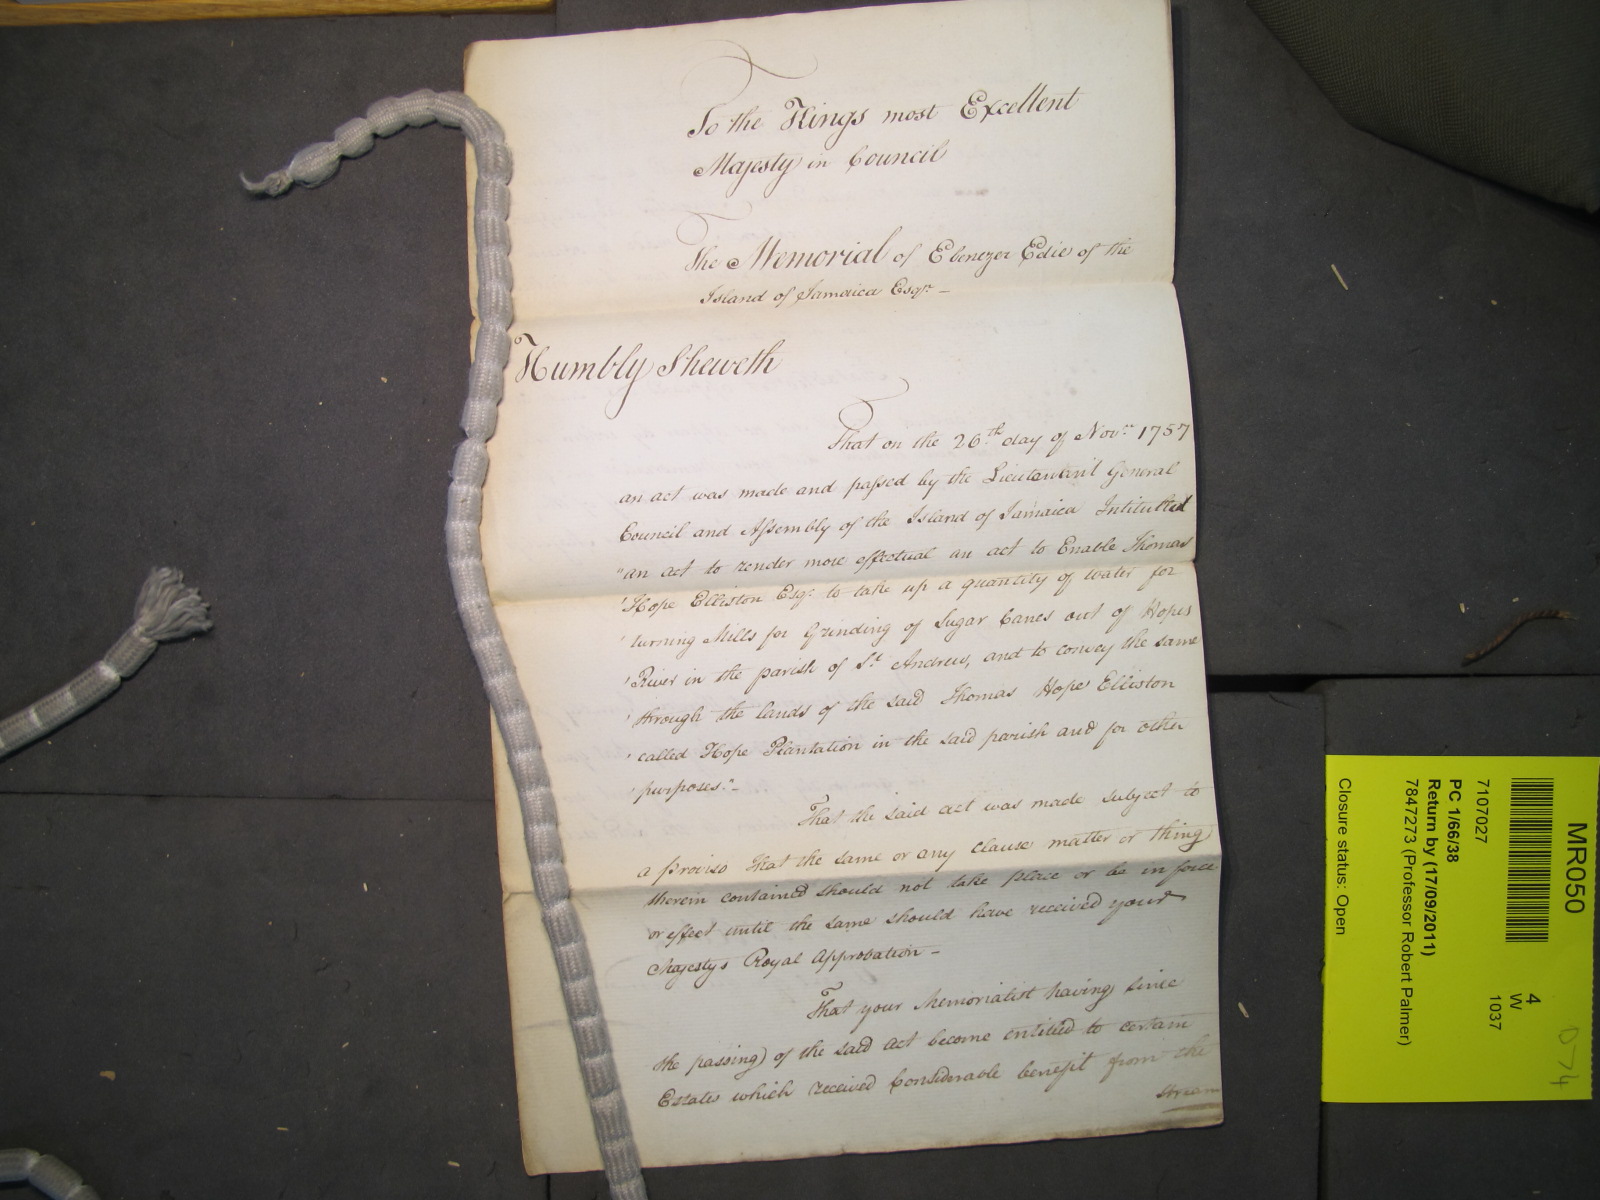 To the Kings most Excellent
Majesty in Council
The Memorial of Ebenezer Edie of the
Island of Jamaica Esqr. -
Humbly Sheweth
That on the 26.th day of Novr. 1757
an act was made and passed by the Lieutenant General
Council and Assembly of the Island of Jamaica Intituled
"an act to render more effectual an act to Enable Thomas
'Hope Elliston Esqr. to take up a quantity of water for
'turning Mills for Grinding of Sugar Canes out of Hopes
'River in the parish of St. Andrew, and to convey the same
'through the lands of the said Thomas Hope Elliston
'called Hope Plantation in the said parish and for other
'purposes."-
That the said act was made subject to
a Proviso That the same or any clause matter or thing
therein contained should not take place or be in force
or effect until the same should have received your
Majestys Royal Approbation -
That your Memorialist having since
the passing of the said Act become entitled to certain
Estates which received Considerable benefit from the
stream
MR050
7107027
PC 1/66/38
Return by (17/09/2011)
7847273 (Professor Robert Palmer)
Closure status: Open
4
W
1037
074